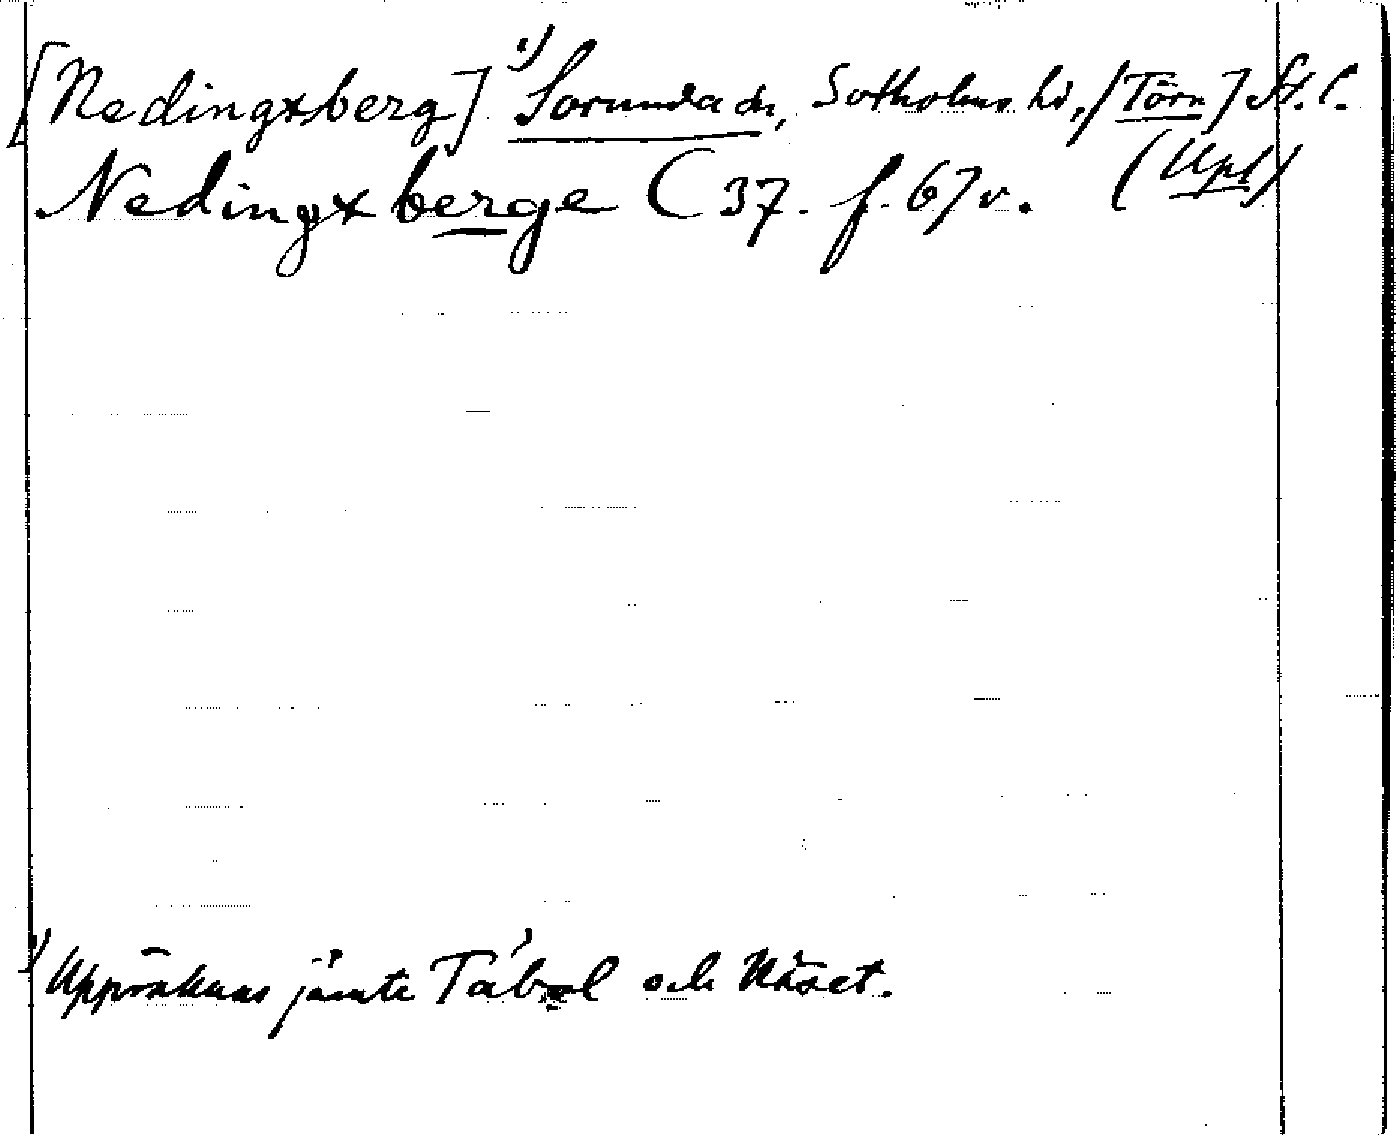 [Nedingxberg] ¹⁾ Sorunda sn, Sotholms hd, [Törn] St. l.
Nedingxberge C 37. f. 67 v. (Upl)
¹⁾ Uppräknas jämte Täbol och Näset.